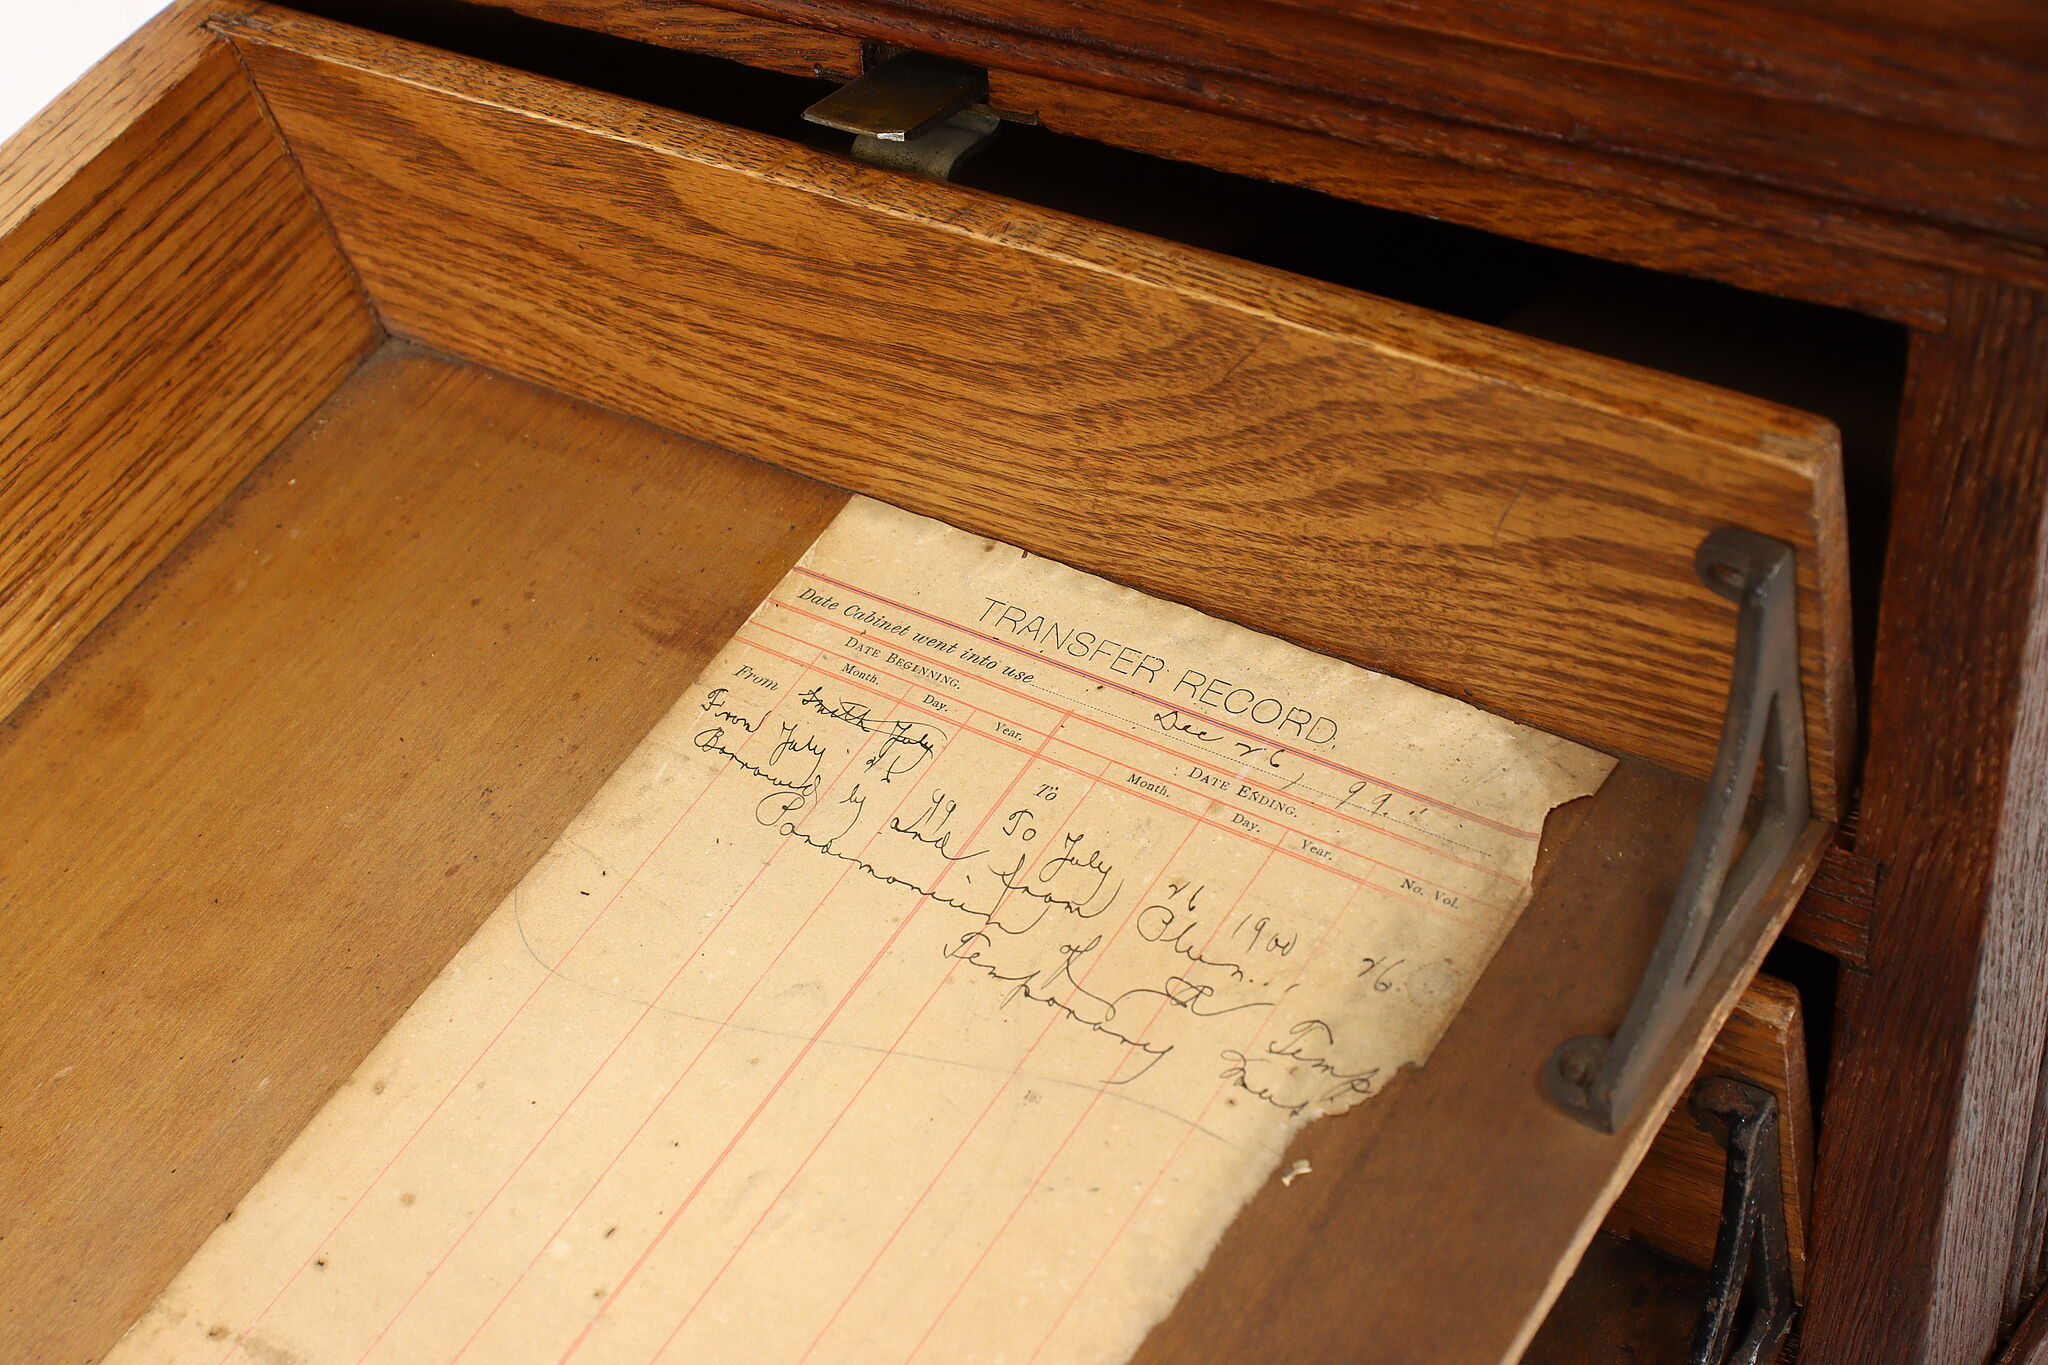 TRANSFER RECORD.
Date Cabinet went into use Dec 26, 99.
DATE BEGINNING. DATE ENDING.
Month. Day. Year. Month. Day. Year. No. Vol.
From Smith July To
From July 26 99 To July 26 1900 26.
Borrowed by and from
of Temp
Temporary